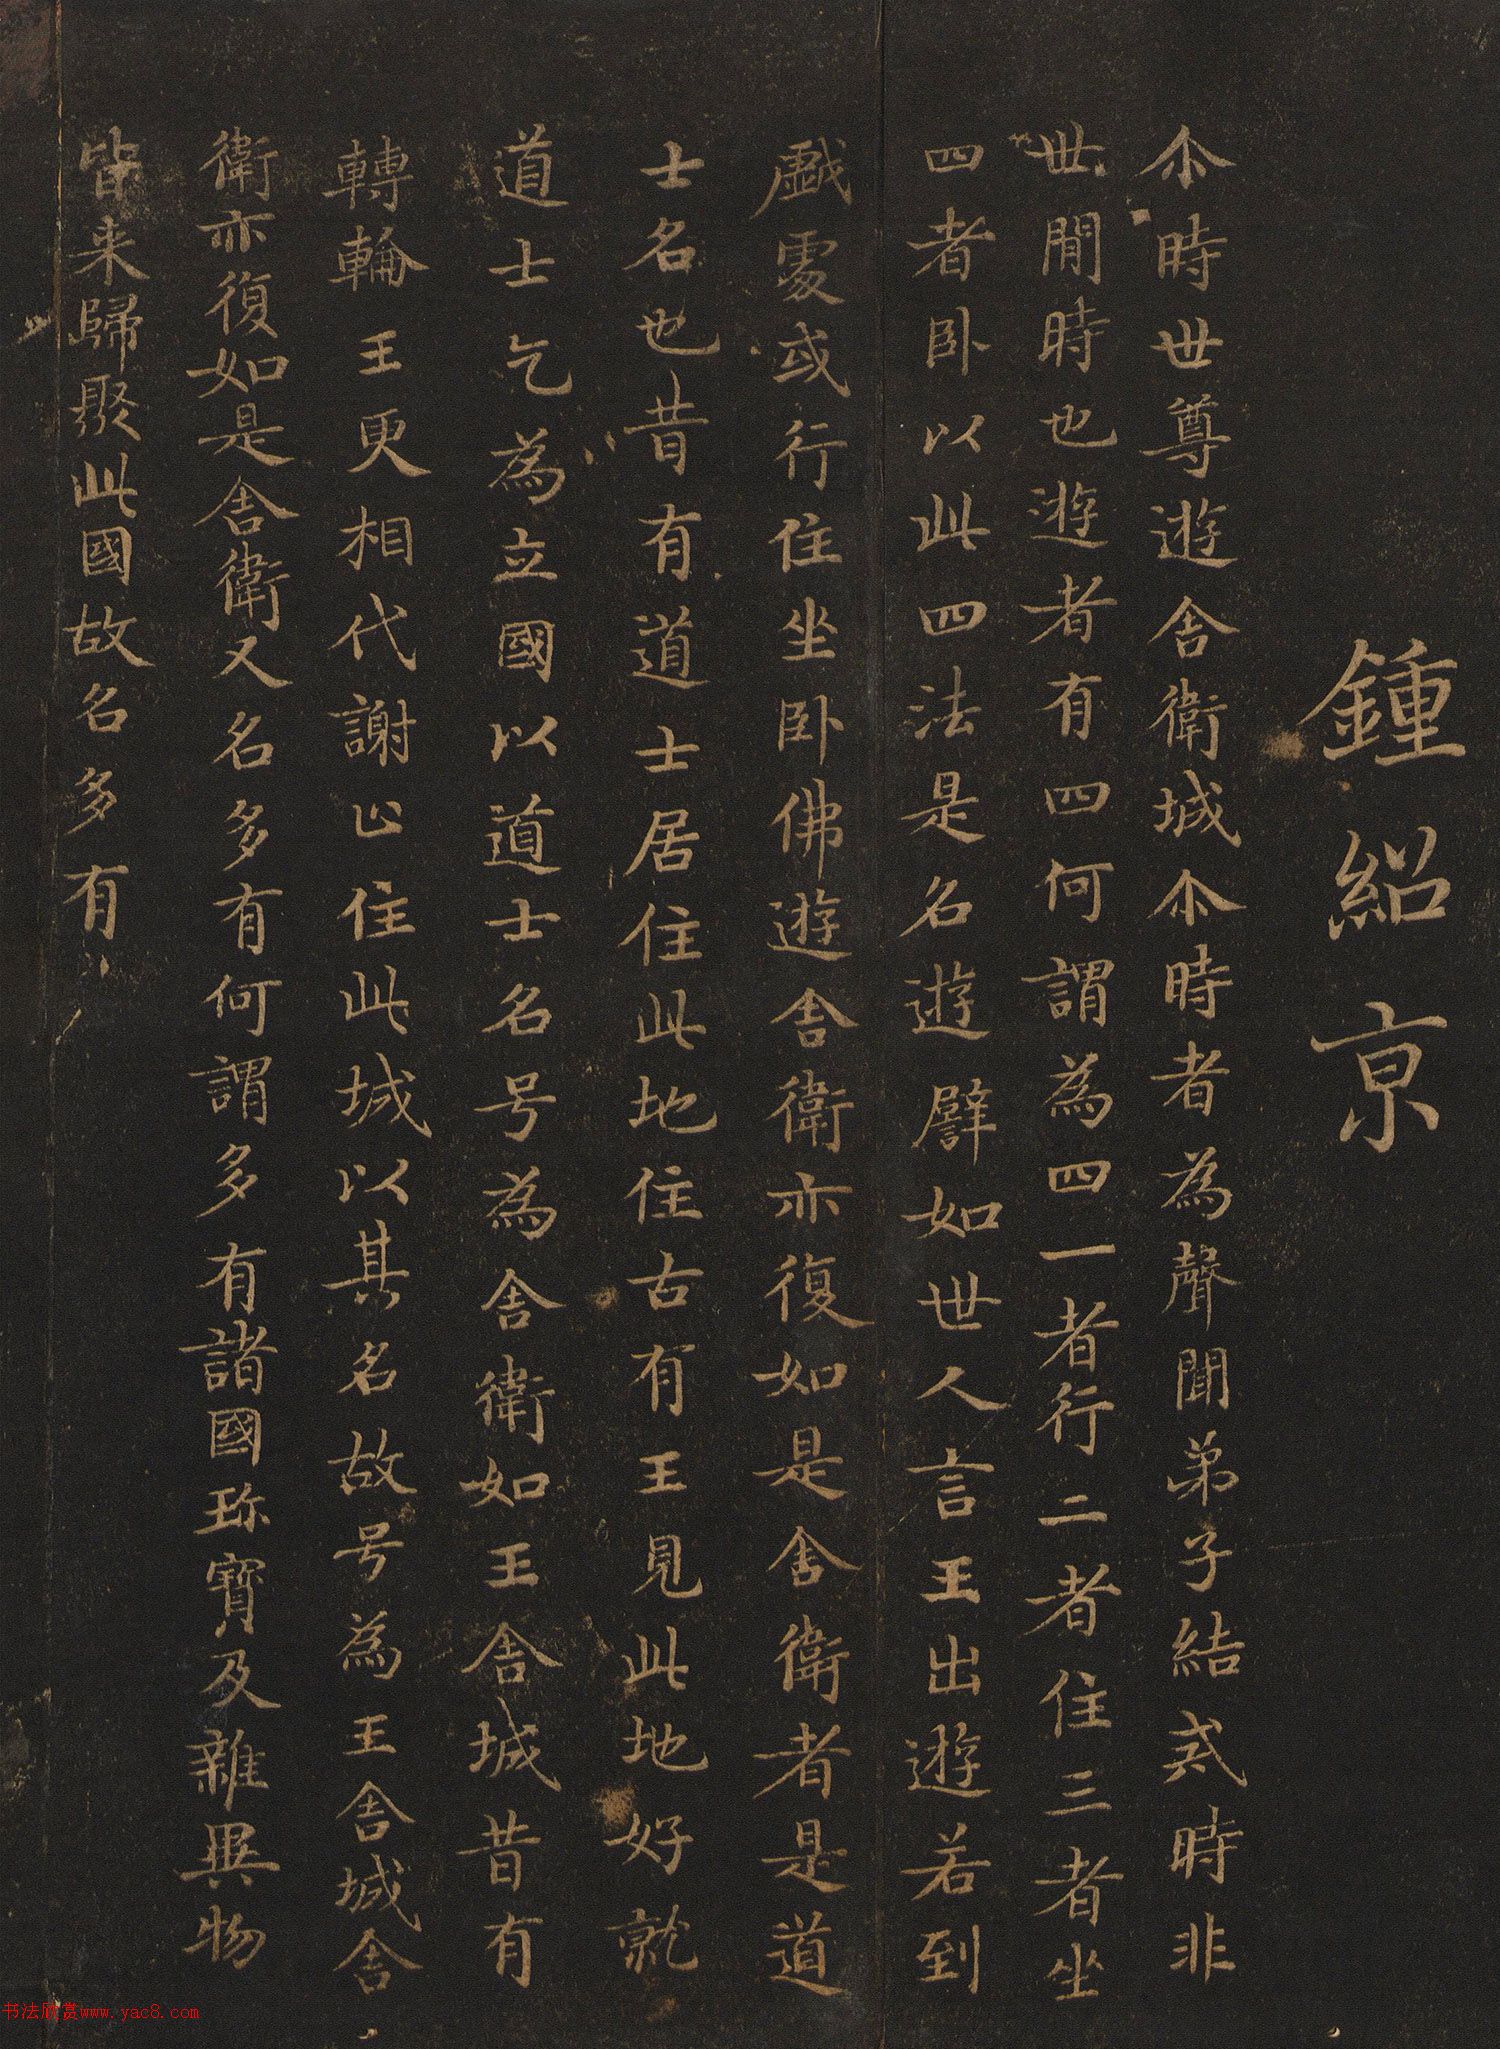 鍾紹京
尒時世尊遊舍衛城尒時者為聲聞弟子結戒時非
世間時也遊者有四何謂為四一者行二者住三者坐
四者卧以此四法是名遊譬如世人言王出遊若到
戲處或行住坐卧佛遊舍衛亦復如是舍衛者是道
士名也昔有道士居住此地住古有王見此地好就
道士乞為立國以道士名号為舍衛如王舍城昔有
轉輪王更相代謝止住此城以其名故号為王舍城舍
衛亦復如是舍衛又名多有何謂多有諸國珎寶及雜異物
皆来歸聚此國故名多有
书法欣赏www.yac8.com